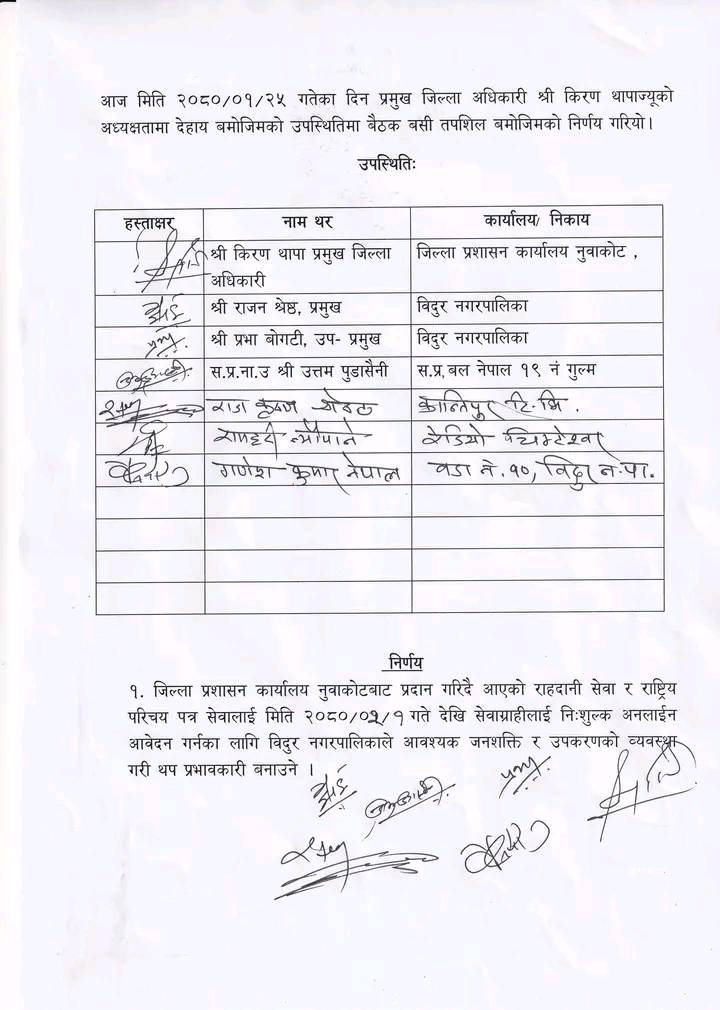 आज मिति २०८०/०१/२५ गतेका दिन प्रमुख जिल्ला अधिकारी श्री किरण थापाज्यूको
अध्यक्षतामा देहाय बमोजिमको उपस्थितिमा बैठक बसी तपशिल बमोजिमको निर्णय गरियो।
उपस्थितिः
हस्ताक्षर नाम थर कार्यालय/ निकाय
श्री किरण थापा प्रमुख जिल्ला जिल्ला प्रशासन कार्यालय नुवाकोट ,
अधिकारी
श्री राजन श्रेष्ठ, प्रमुख विदुर नगरपालिका
श्री प्रभा बोगटी, उप- प्रमुख विदुर नगरपालिका
स.प्र.ना.उ श्री उत्तम पुडासैनी स.प्र.बल नेपाल १९ नं गुल्म
कृष्ण कान्तिपुर टि.भि.
रामहरी न्यौपाने रेडियो
गणेश कुमार नेपाल वडा नं.१०, विदुर न.पा.
निर्णय
१. जिल्ला प्रशासन कार्यालय नुवाकोटबाट प्रदान गरिदै आएको राहदानी सेवा र राष्ट्रिय
परिचय पत्र सेवालाई मिति २०८०/०२/१ गते देखि सेवाग्राहीलाई निःशुल्क अनलाईन
आवेदन गर्नका लागि विदुर नगरपालिकाले आवश्यक जनशक्ति र उपकरणको व्यवस्था
गरी थप प्रभावकारी बनाउने ।